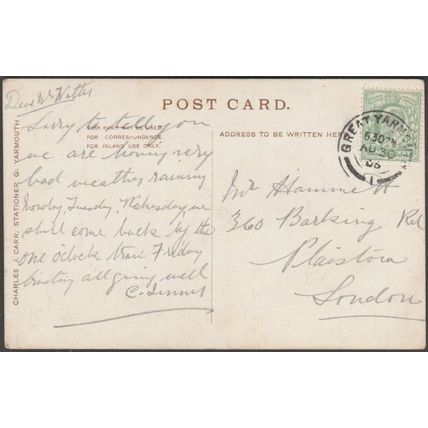 Dear Mr Hitths
POST CARD.
THIS PART MAY BE USED
FOR CORRESPONDENCE
FOR INLAND USE ONLY.
ADDRESS TO BE WRITTEN HERE
CHARLES J. CARR, STATIONER, G: YARMOUTH
Sorry to tell you
we are having very
bad weather raining
Monday, Tuesday, Wednesday, we
shall come back by the
one oclock train Friday
trusting all going well
C.
GREAT YARMOUTH
630PM
AU 30
06
1
Mr Hammett
360 Barking Rd
Plaistow
London